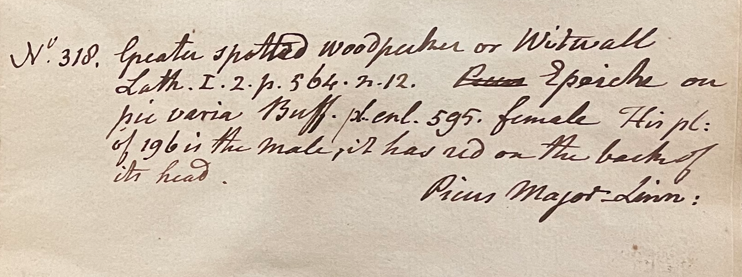 No. 318. Greater spotted woodpecker or Witwall
Lath. I. 2. p. 564. n. 12. Epeiche ou
pic varia Buff. pl. enl. 595. female His pl:
of 196 is the male, it has red on the back of
its head.
Picus Major Linn: